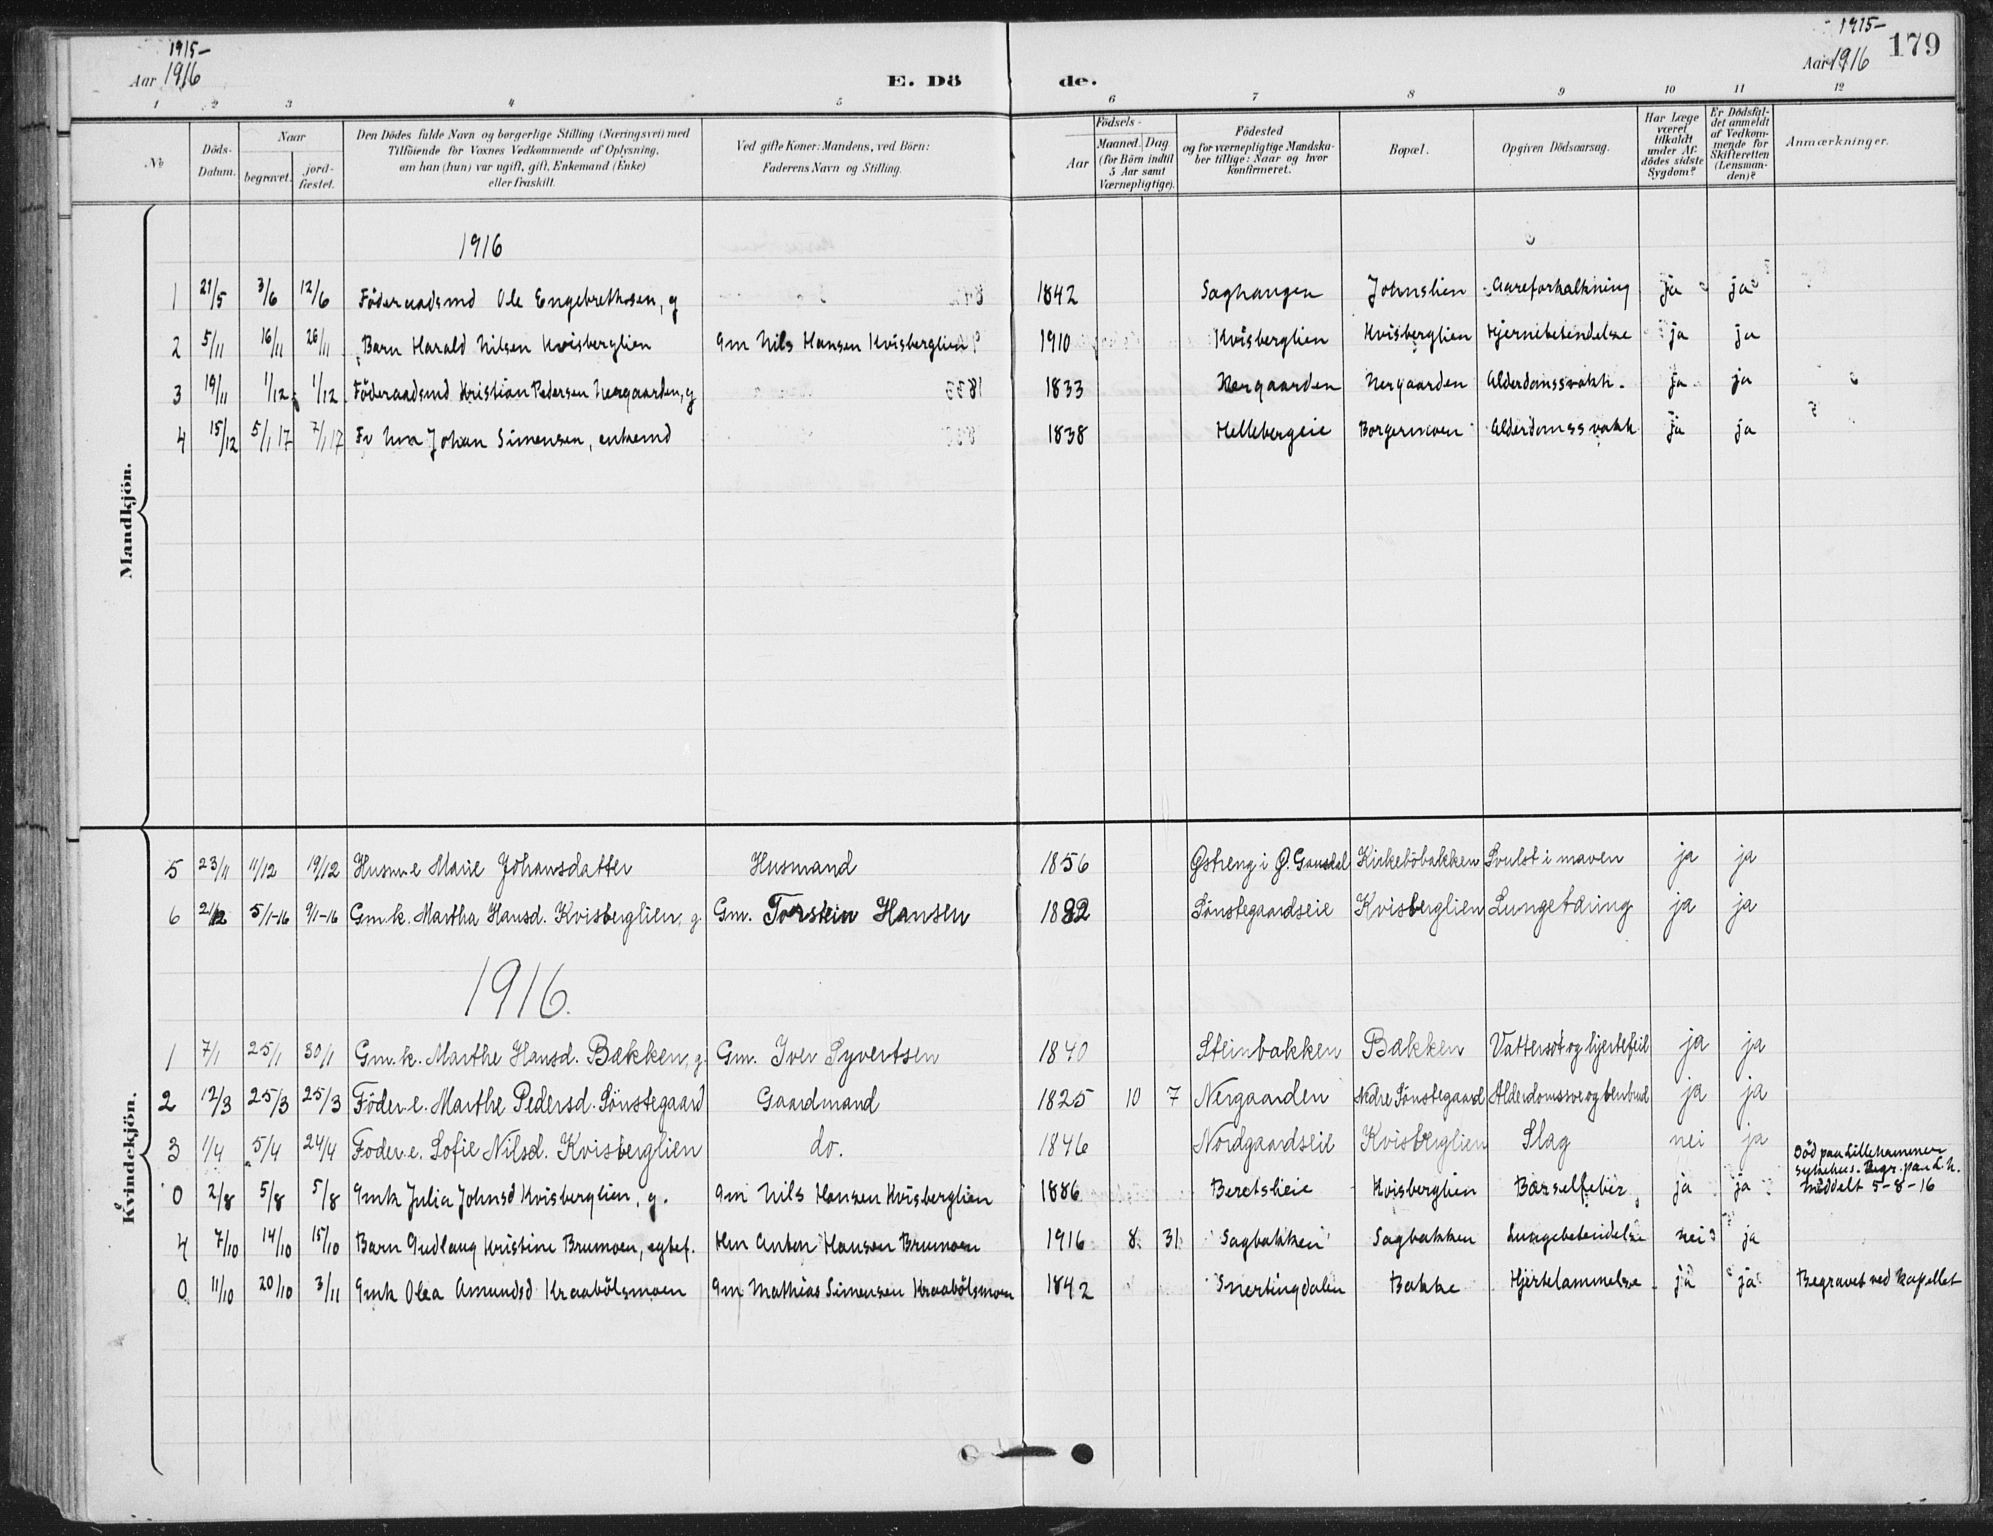 1915-
Aar 1916
E. Dö
de.
1915-
Aar 1916
179
1 2 3 4 5 6 7 8 9 10 11 12
No
Döds-
Datum.
Naar
begravet.
jord-
fæstet.
Den Dödes fulde Navn og borgerlige Stilling (Næringsvei) med
Tilföiende for Voxnes Vedkommende af Oplysning,
om han (hun) var ugift, gift, Enkemand (Enke)
eller fraskilt.
Ved gifte Koner: Mandens, ved Börn:
Faderens Navn og Stilling.
Födsels-
Aar
Maaned. Dag
(for Börn indtil
5 Aar samt
Værnepligtige).
Födested
og for værnepligtige Mandska-
ber tillige: Naar og hvor
konfirmeret.
Bopæl.
Opgiven Dödsaarsag.
Har Læge
været
tilkaldt
under Af-
dödes sidste
Sygdom?
Er Dödsfal-
det anmeldt
af Vedkom-
mende for
Skifteretten
(Lensman-
den)?
Anmærkninger.
Mandkjön.
1916
1 21/5 3/6 12/6 Föderaadsmd Ole Engebrethsen, g 1842 Saghaugen Johnslien Aareforkalkning ja ja
2 5/11 16/11 26/11 Barn Harald Nilsen Kvisberglien Gm Nils Hansen Kvisberglien 1910 Kvisberglien Kvisberglien Hjernebetendelse ja ja
3 19/11 1/12 1/12 Föderaadsmd Kristian Pedersen Nergaarden, g 1833 Nergaarden Nergaarden Alderdomssvakh. ja ja
4 15/12 5/1 17 7/1 17 Fv Johan Simensen, enkemd 1838 Hellebergeie Borgermoen Alderdomssvakh ja ja
Kvindekjön.
5 23/11 11/12 19/12 Husm.e Marie Johansdatter Husmand 1856 Østreng i Ø. Gausdal Kirkeböbakken Svulst i maven ja ja
6 21/12 5/1-16 9/1-16 Gm.k. Martha Hansd. Kvisberglien, g. Gm. Torstein Hansen 1882 Sønstegaardseie Kvisberglien Lungetæring ja ja
1916.
1 7/1 25/1 30/1 Gm.k. Marthe Hansd. Bækken, g. Gm. Iver Syvertsen 1840 Steinbakken Bækken Vattersot og hjertefeil ja ja
2 12/3 25/3 25/3 Föder.e. Marthe Pedersd. Sönstegaard Gaardmand 1825 10 7 Nergaarden Nedre Sönstegaard Alderdomssv og benbrud ja ja
3 1/4 5/4 24/4 Foder.e. Sofie Nilsd. Kvisberglien do. 1846 Nordgaardseie Kvisberglien Slag nei ja
Död paa Lillehammer
sykehus. Begr. paa L.h.
0 2/8 5/8 5/8 Gmk Julia Johnsd Kvisberglien, g. Gm Nils Hansen Kvisberglien 1886 Beretslieie Kvisberglien Barselfeber ja ja Meddelt 5-8-16
4 7/10 14/10 15/10 Barn Gudlaug Kristine Brumoen, egtef. Hm Anton Hansen Brumoen 1916 8 31 Sagbakken Sagbakken Lungebetendelse nei ja
0 11/10 20/10 3/11 Gmk Olea Amundsd Kraabölsmoen Gm Mathias Simensen Kraabölsmoen 1842 Snertingdalen Bakke Hjertelammelse ja ja Begravet ved kapellet